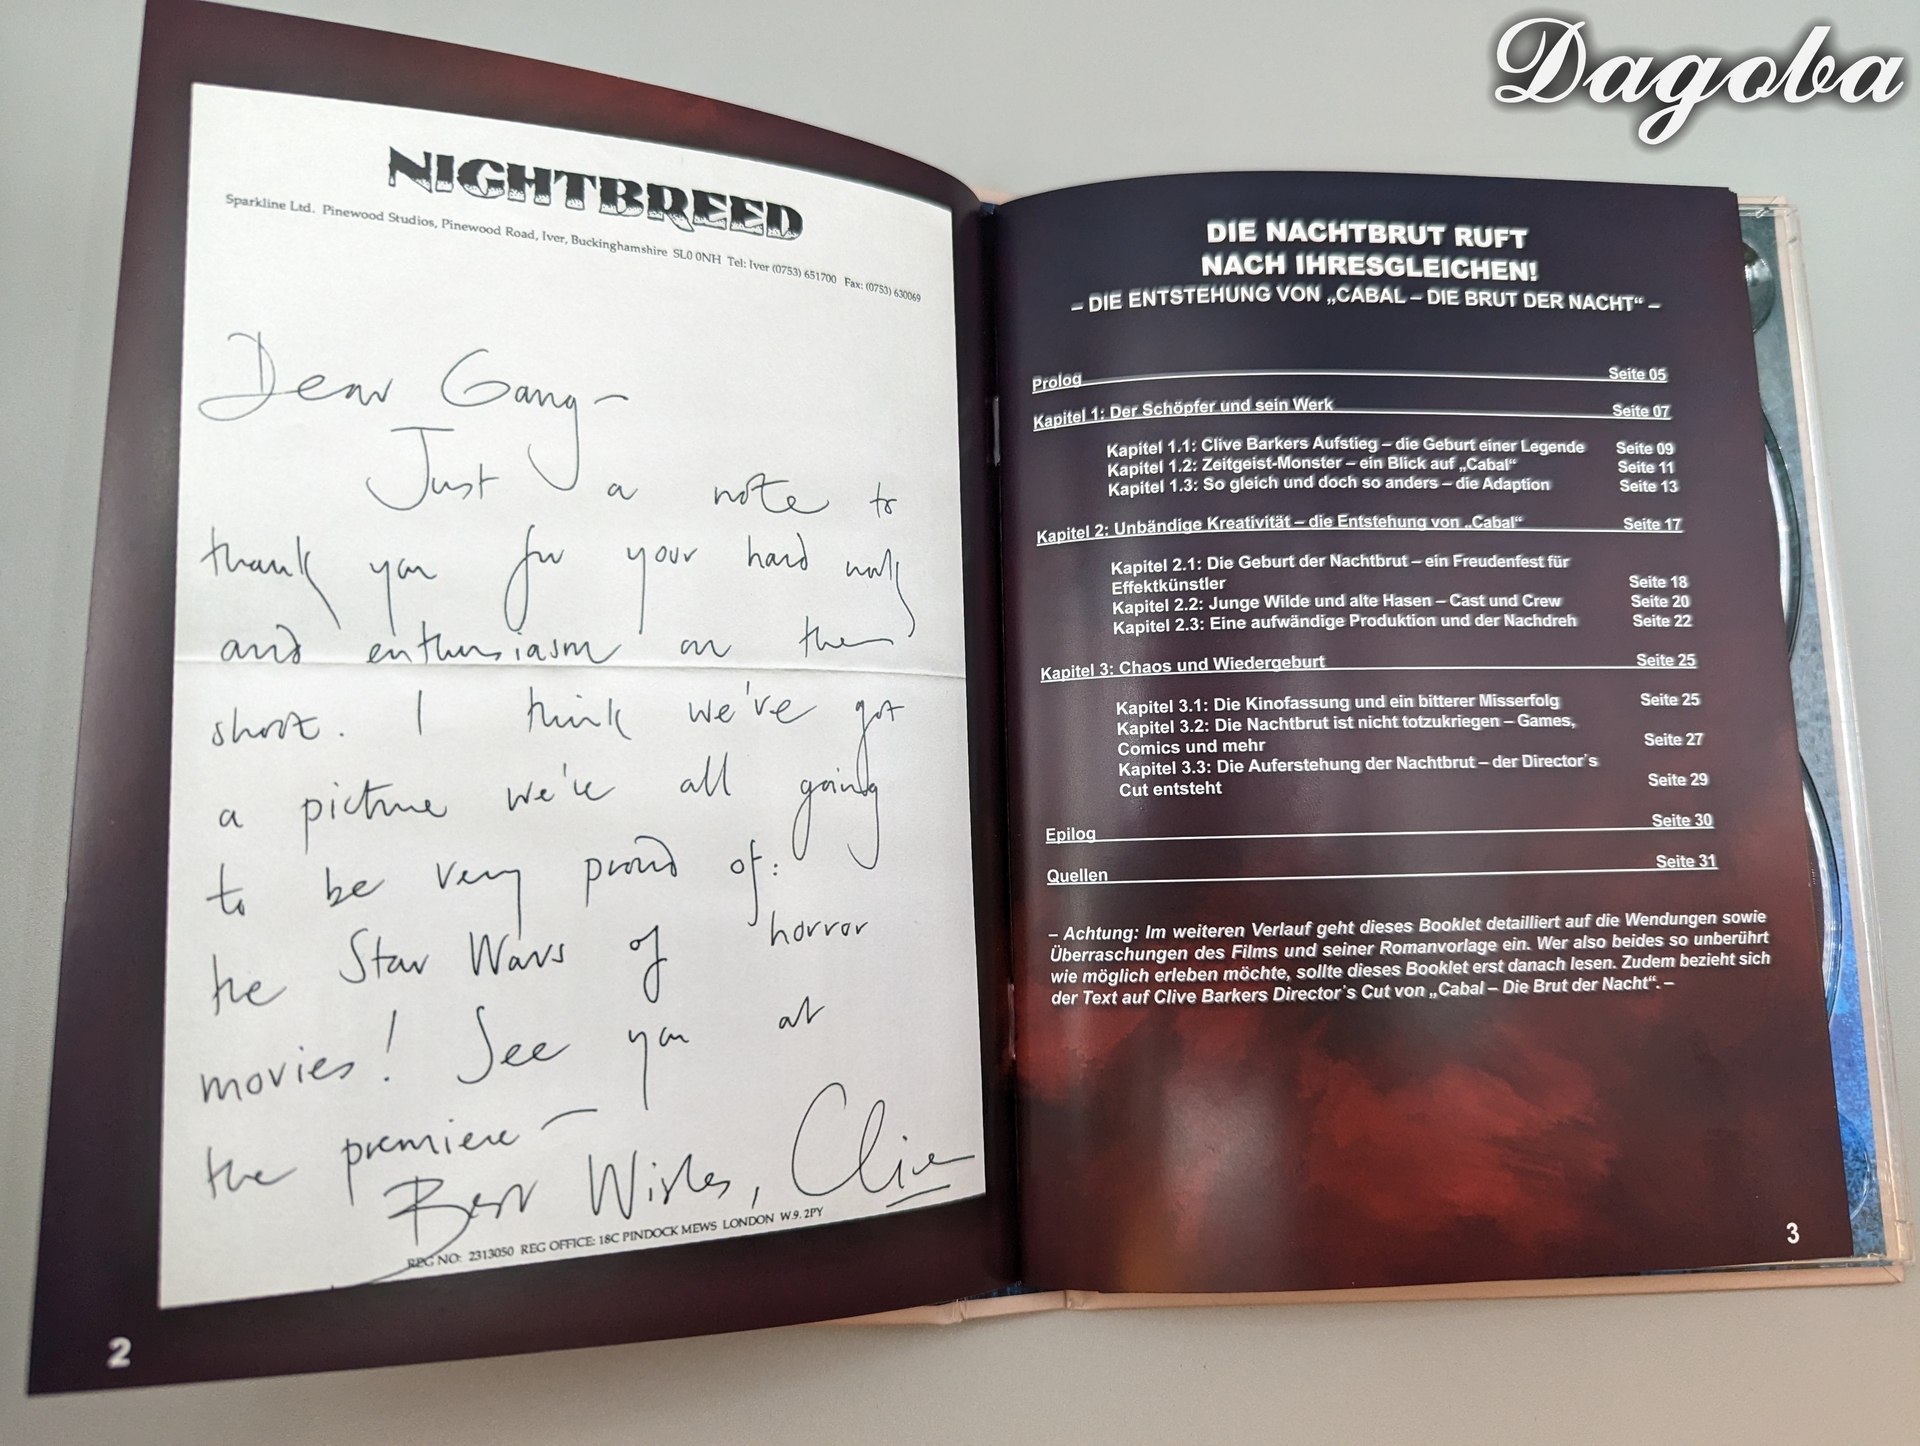 Dagoba
NIGHTBREED
Sparkline Ltd. Pinewood Studios, Pinewood Road, Iver, Buckinghamshire SL0 0NH Tel: Iver (0753) 651700 Fax: (0753) 630069
Dear Gang –
Just a note to
thank you for your hard work
and enthusiasm on the
shoot. I think we've got
a picture we're all going
to be very proud of:
the Star Wars of horror
movies! See you at
the premiere –
Best Wishes, Clive
REG NO: 2313050 REG OFFICE: 18C PINDOCK MEWS LONDON W.9. 2PY
2
DIE NACHTBRUT RUFT
NACH IHRESGLEICHEN!
– DIE ENTSTEHUNG VON „CABAL – DIE BRUT DER NACHT“ –
Prolog Seite 05
Kapitel 1: Der Schöpfer und sein Werk Seite 07
Kapitel 1.1: Clive Barkers Aufstieg – die Geburt einer Legende Seite 09
Kapitel 1.2: Zeitgeist-Monster – ein Blick auf „Cabal“ Seite 11
Kapitel 1.3: So gleich und doch so anders – die Adaption Seite 13
Kapitel 2: Unbändige Kreativität – die Entstehung von „Cabal“ Seite 17
Kapitel 2.1: Die Geburt der Nachtbrut – ein Freudenfest für
Effektkünstler Seite 18
Kapitel 2.2: Junge Wilde und alte Hasen – Cast und Crew Seite 20
Kapitel 2.3: Eine aufwändige Produktion und der Nachdreh Seite 22
Kapitel 3: Chaos und Wiedergeburt Seite 25
Kapitel 3.1: Die Kinofassung und ein bitterer Misserfolg Seite 25
Kapitel 3.2: Die Nachtbrut ist nicht totzukriegen – Games,
Comics und mehr Seite 27
Kapitel 3.3: Die Auferstehung der Nachtbrut – der Director's
Cut entsteht Seite 29
Epilog Seite 30
Quellen Seite 31
– Achtung: Im weiteren Verlauf geht dieses Booklet detailliert auf die Wendungen sowie
Überraschungen des Films und seiner Romanvorlage ein. Wer also beides so unberührt
wie möglich erleben möchte, sollte dieses Booklet erst danach lesen. Zudem bezieht sich
der Text auf Clive Barkers Director's Cut von „Cabal – Die Brut der Nacht“. –
3